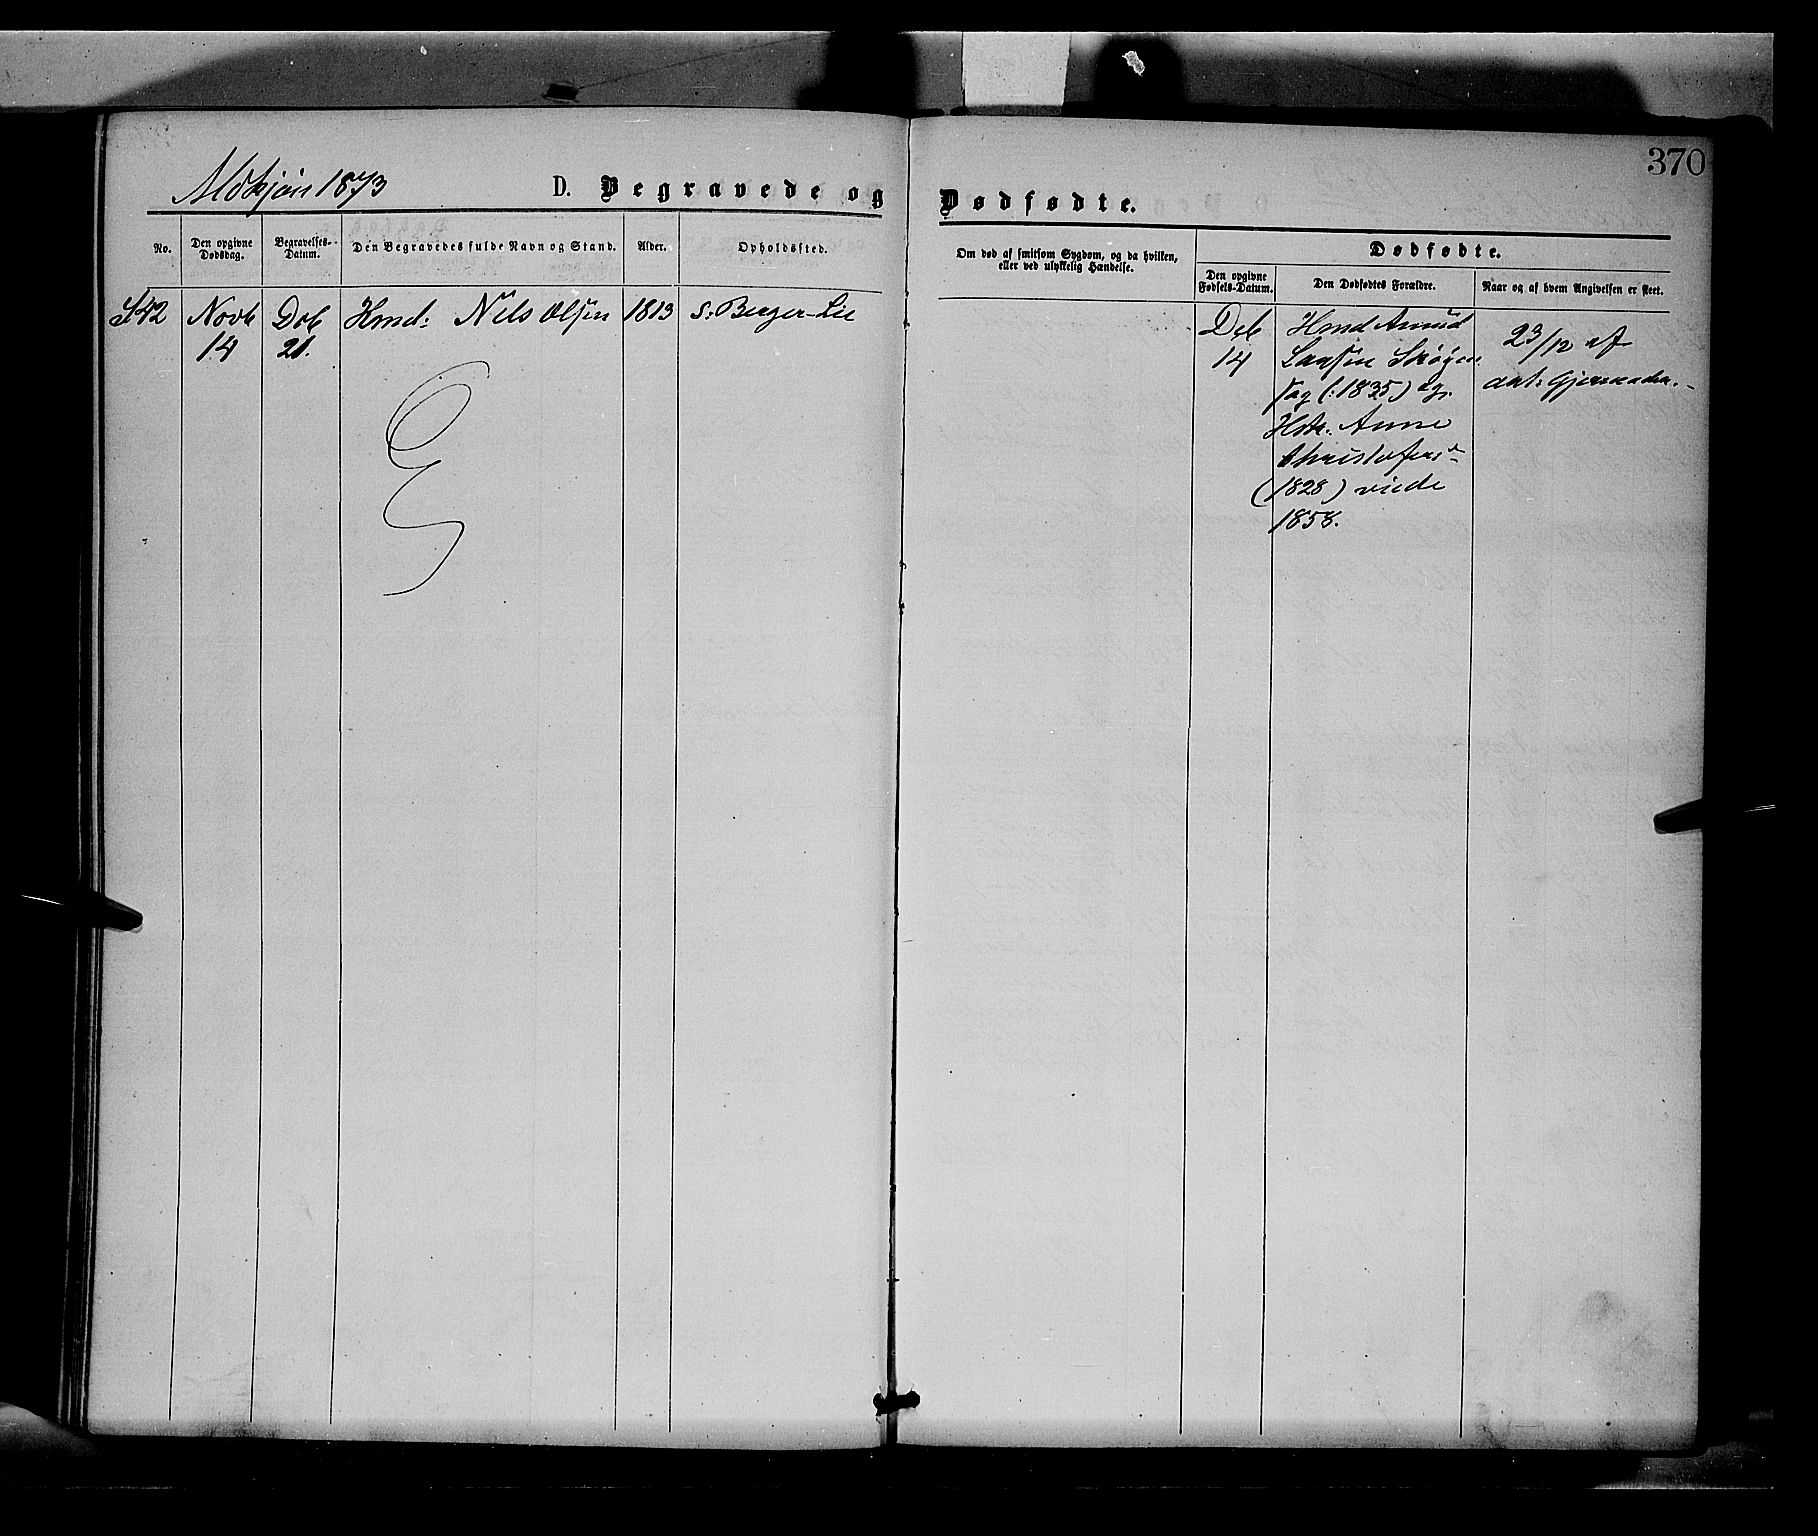 370
1873
D. Begravede og Dødfødte.
No.
Den opgivne Dødsdag.
Begravelses-Datum.
Den Begravedes fulde Navn og Stand.
Alder.
Opholdssted.
Om død af smitsom Sygdom, og da hvilken,
eller ved ulykkelig Hændelse.
Dødfødte.
Den opgivne Fødsels-Datum.
Den Dødfødtes Forældre.
Naar og af hvem Angivelsen er skeet.
42 Novb Deb Hmd: Nils Olsen 1813 s: Berger-Lie
14 21.
Deb Hmd Amund
14 Larsen
(:1835) og
Hstr. Anne
Christofersd
(1828) viede
1858.
23/12 af